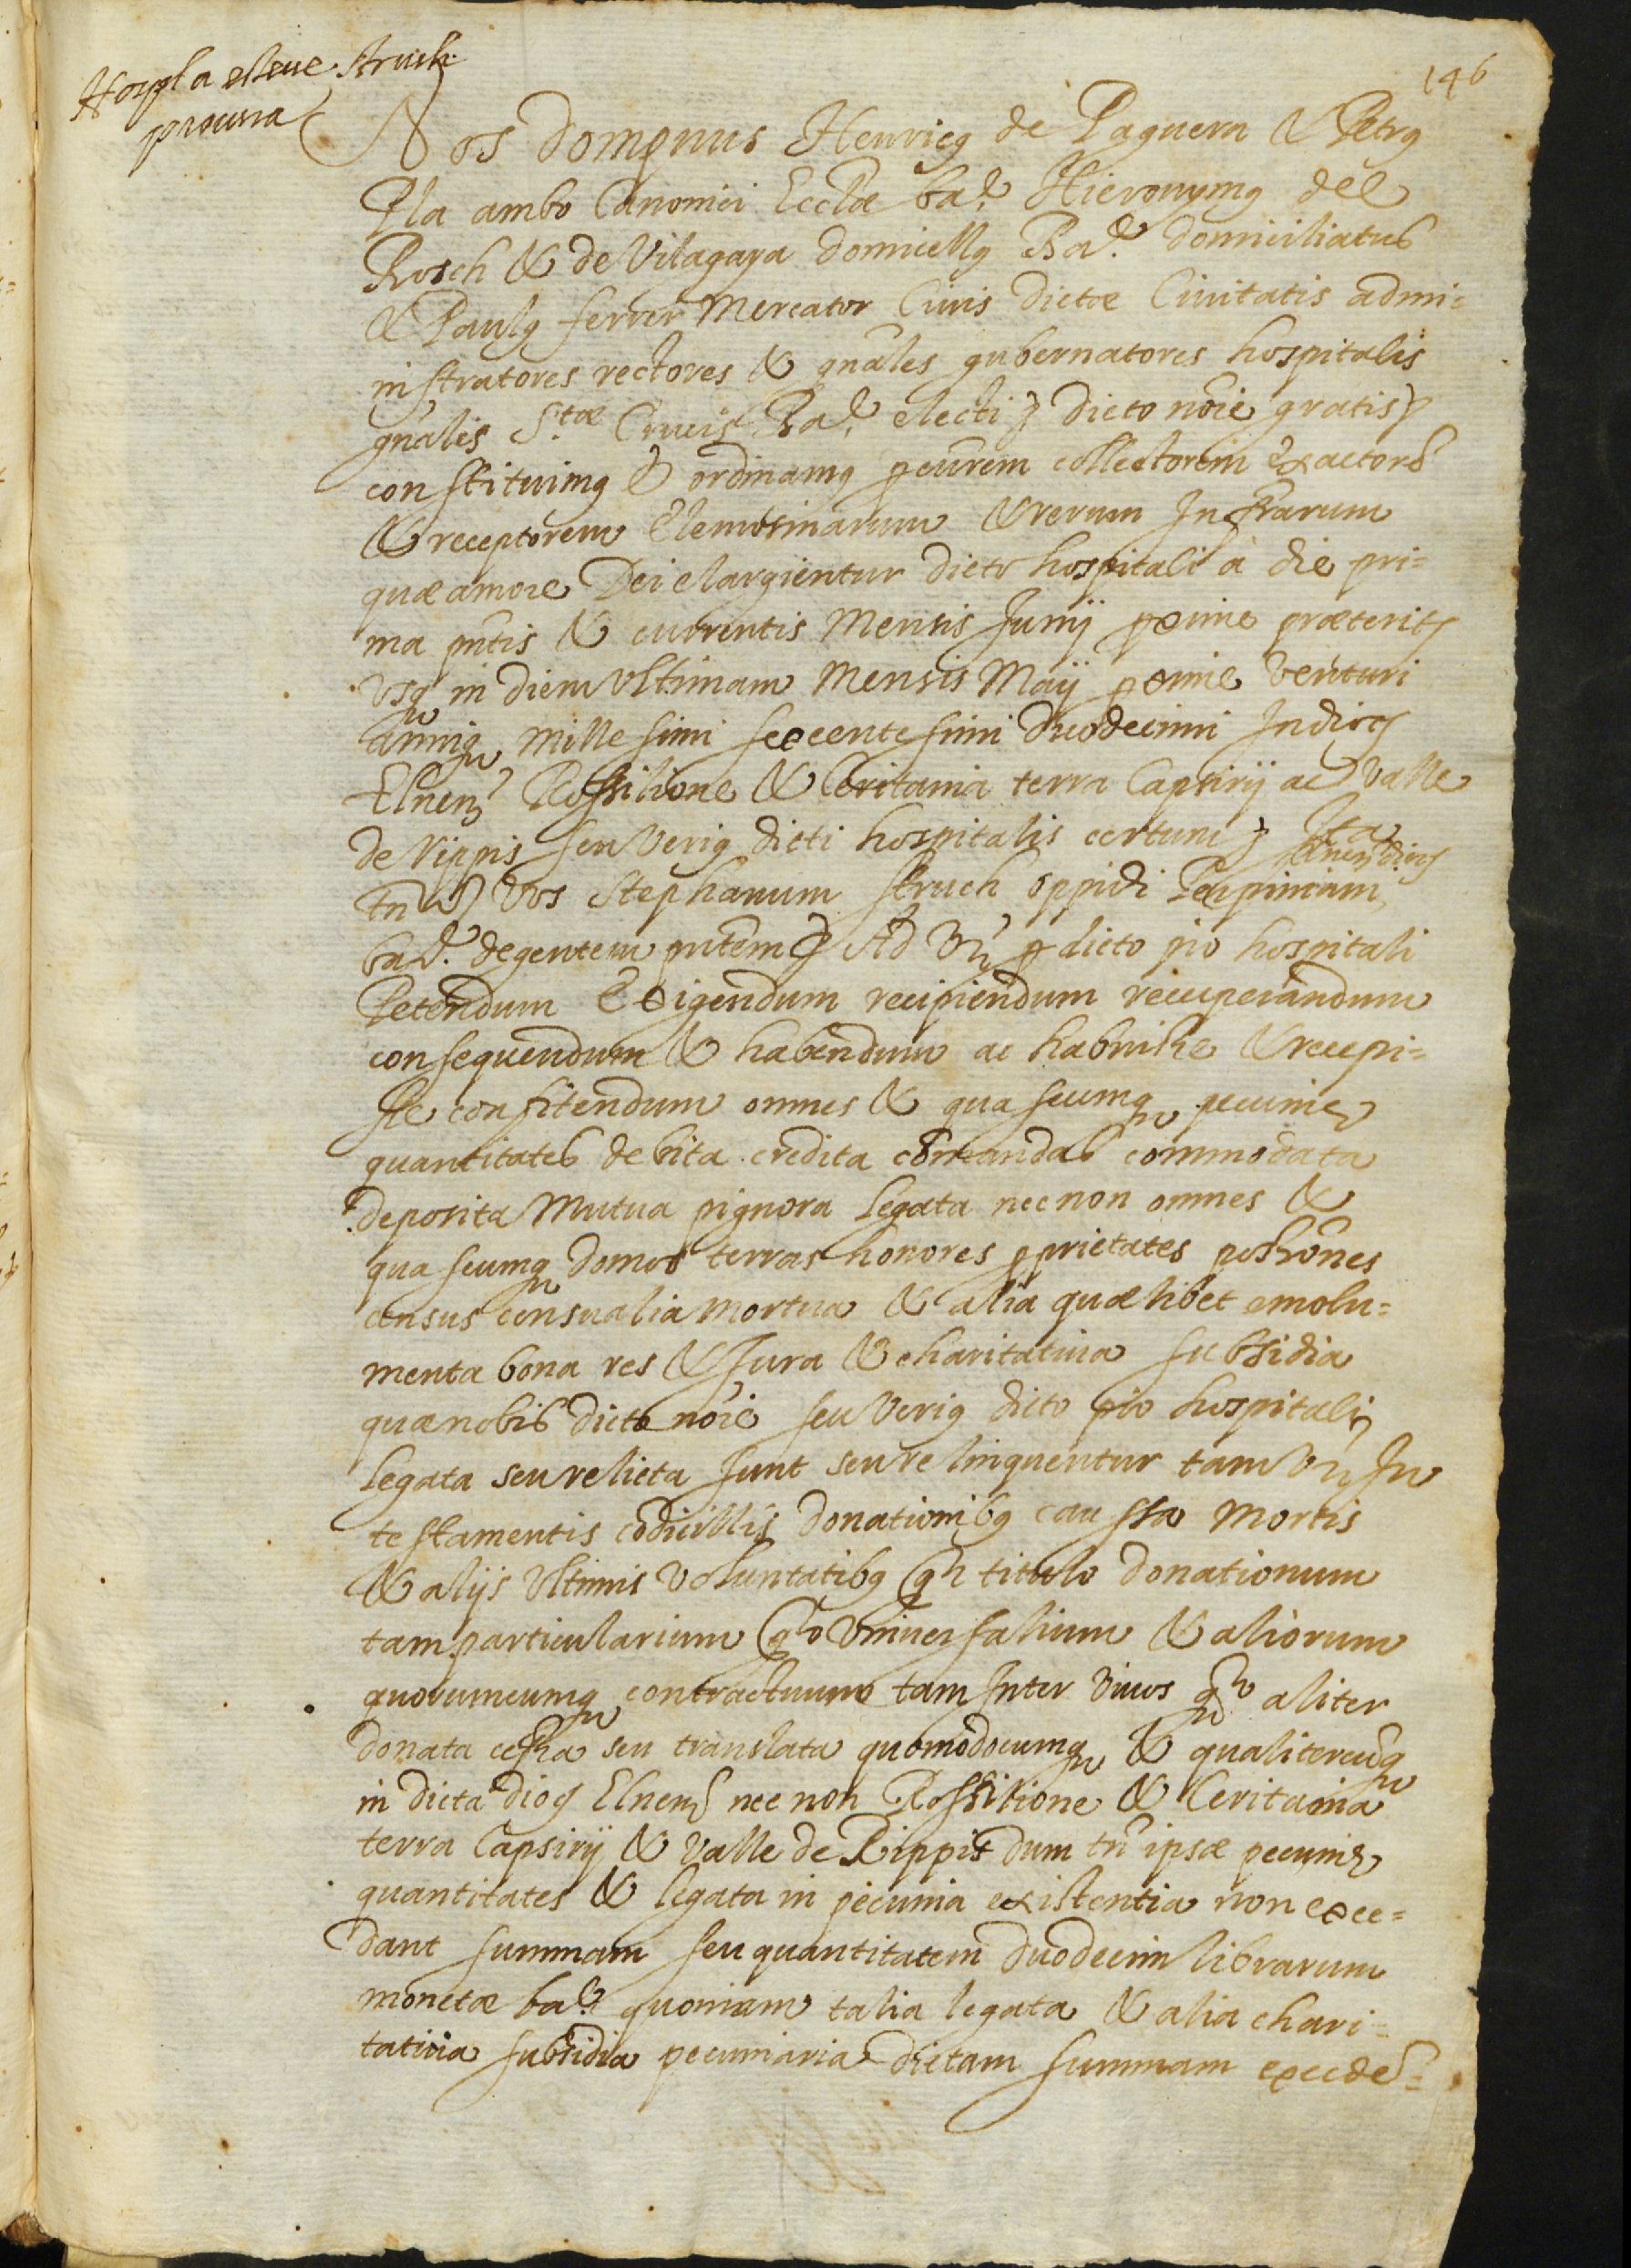 Hospl a esteve struch
procura
146
Nos Dompnus Henricq de Paguera & Petrq
Pla ambo Canonici Ecclæ ba.e Hieronymq del
Rosch & de Vilagaya domicellq Ba.e domiciliatus
& Paulq ferrer Mercator Civis dictæ Civitatis admi=
nistratores rectores & gnales gubernatores hospitalis
gnalis S.tæ Crucis Ba.e electi dicto noie gratis
constituimq & ordinamq pcurem collectorem exactore
& receptorem Elemosinarum & rerum Infrarum
quæ amore Dei elargientur dicto hospitali à die pri=
ma pntis & currentis Mensis Junij pxime præterit
usq in diem ultimam Mensis Maij pxime venturi
anniq Millesimi sexcentesimi duodecimi In dioc
Elnen Rossilione & Ceritania terra Capsirij ac Valle
de Rippis seu Veriq dicti hospitalis certum Ita
tn & Vos Stephanum struch oppidi Perpiniani
Elnen dioc
ba.e degentem pntem & Ad p dicto pio hospitali
Petendum Exigendum recipiendum recuperandum
consequendum & habendum ac habuisse & recepi=
sse confitendum omnes & quascumq pecunie
quantitates debita credita comandas commodata
deposita Mutua pignora legata nec non omnes &
quascumq domos terras honores pprietates possones
census censualia mortua & alia quælibet emolu=
menta bona res & Jura & charitativa subsidia
quæ nobis dicto noie seu Veriq dicto pio hospitali
legata seu relicta sunt seu relinquentur tam In
testamentis codicillis donationibq caussa Mortis
& alijs ultimis voluntatibq qm titulo donationum
tam particularium qm Universalium & aliorum
quorumcumq contractuum tam Inter vivos qm aliter
donata cessa seu translata quomodocumq & qualitercuq
in dicta dioc Elnen nec non Rossilione & Ceritania
terra Capsirij & Valle de Rippis dum tn ipsæ pecunie
quantitates & legata in pecunia existentia non exce=
dant summam seu quantitatem duodecim librarum
monetæ ba.e quoniam talia legata & alia chari=
tativa subsidia pecuniaria dictam summam excede=